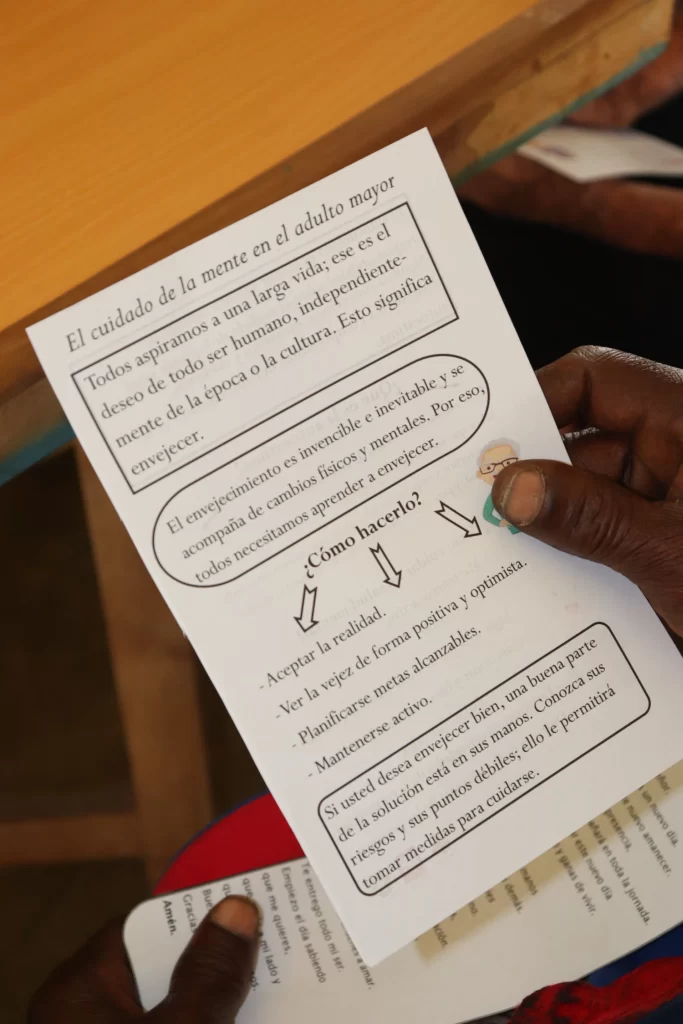 El cuidado de la mente en el adulto mayor
Todos aspiramos a una larga vida; ese es el
deseo de todo ser humano, independiente-
mente de la época o la cultura. Esto significa
envejecer.
El envejecimiento es invencible e inevitable y se
acompaña de cambios físicos y mentales. Por eso,
todos necesitamos aprender a envejecer.
¿Cómo hacerlo?
- Aceptar la realidad.
- Ver la vejez de forma positiva y optimista.
- Planificarse metas alcanzables.
- Mantenerse activo.
Si usted desea envejecer bien, una buena parte
de la solución está en sus manos. Conozca sus
riesgos y sus puntos débiles; ello le permitirá
tomar medidas para cuidarse.
a amar.
Te entrego todo mi ser.
Empiezo el día sabiendo
que me quieres,
a mi lado y
Amén.
un nuevo día.
nuevo amanecer.
presencia.
en toda la jornada.
este nuevo día
y ganas de vivir.
demás.